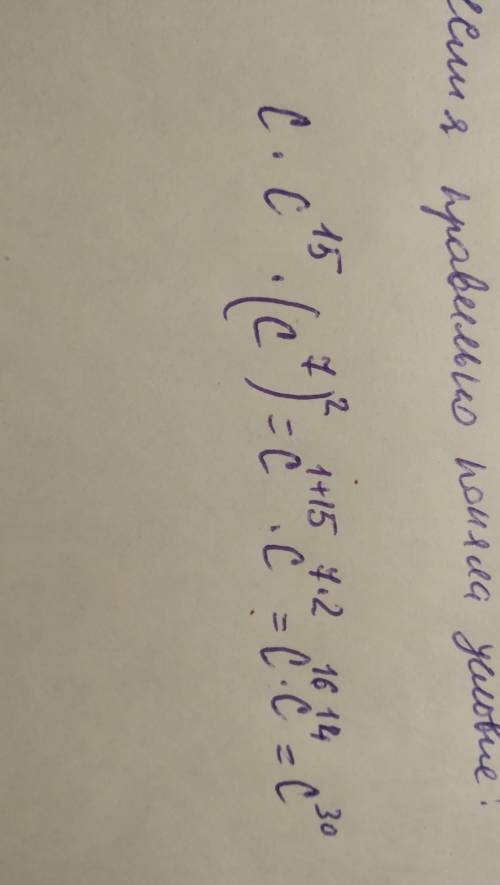 если я правильно поняла условие:
C · C¹⁵ · (C⁷)² = C¹⁺¹⁵ · C⁷·² = C¹⁶ · C¹⁴ = C³⁰